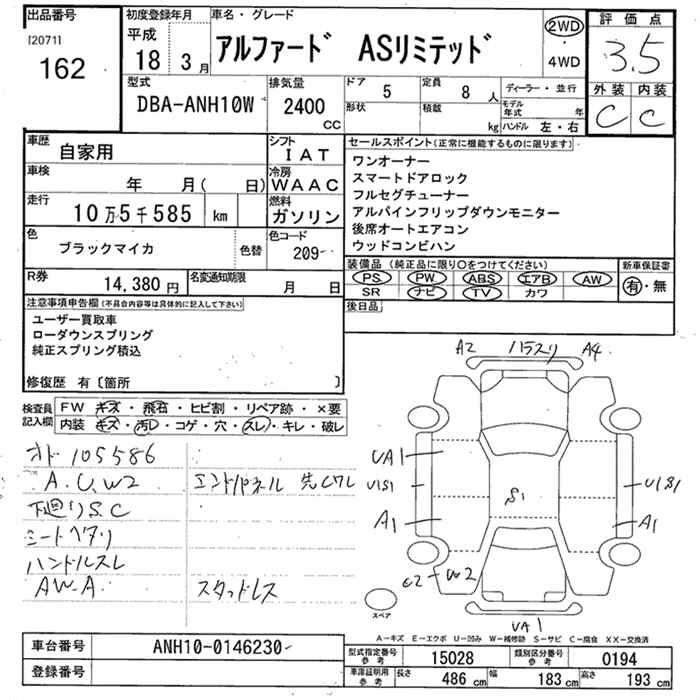 出品番号
[2071]
162
初度登録年月
平成
18 3月
車名・グレード
アルファード ASリミテッド
2WD
4WD
評価点
3.5
外装 内装
C C
型式
DBA-ANH10W
排気量
2400
CC
ドア
5
定員
8人
形状
積載
kg
ディーラー・並行
モデル年式 年
ハンドル 左・右
車歴
自家用
シフト
IAT
車検
年 月( 日)
冷房
WAAC
走行
10万5千585 km
燃料
ガソリン
色
ブラックマイカ
色替
色コード
209-
R券
14,380 円
名変通知期限
月 日
セールスポイント(正常に機能するものに限ります)
ワンオーナー
スマートドアロック
フルセグチューナー
アルパインフリップダウンモニター
後席オートエアコン
ウッドコンビハン
装備品 (純正品に限り○をつけてください)
PS PW ABS エアB AW
SR ナビ TV カワ
新車保証書
有・無
後日品
注意事項申告欄(不具合内容等は具体的に記入して下さい)
ユーザー買取車
ローダウンスプリング
純正スプリング積込
修復歴 有〔箇所 〕
検査員記入欄
FW キズ・飛石・ヒビ割・リペア跡・×要
内装 キズ・汚レ・コゲ・穴・スレ・キレ・破レ
オド 105586
A.U.W2
下廻りS.C
シートヘタリ
ハンドルスレ
AW.A
エンドパネル
スタッドレス
A2 ハラスリ A4
UA1
U1S1
A1
S1
U1S1
A1
W2
UA1
スペア
A−キズ E−エクボ U−凹み W−補修跡 S−サビ C−腐食 XX−交換済
車台番号
ANH10-0146230-
登録番号
型式指定番号 参考
15028
類別区分番号 参考
0194
車庫証明用 参考
長さ 486 cm
幅 183 cm
高さ 193 cm